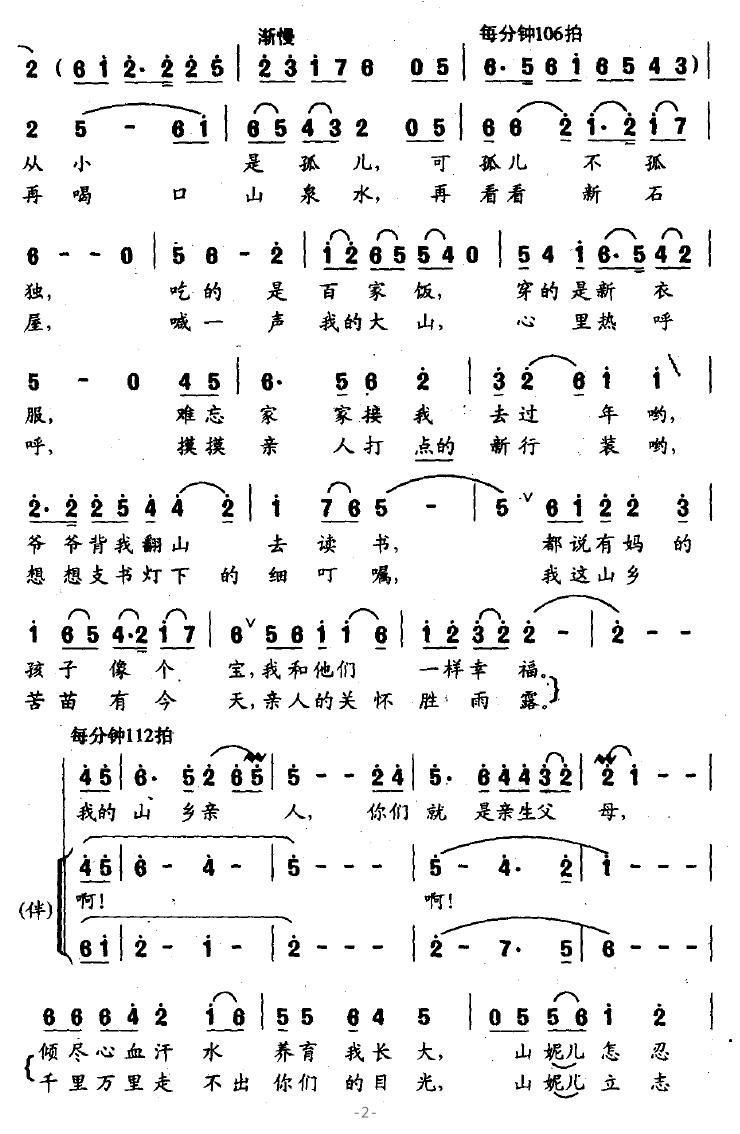 渐慢 每分钟106拍
2 ( 6 1 2· 2 2 5 | 2 3 1 7 6 0 5 | 6· 5 6 1 6 5 4 3 ) |
2 5 - 6 1 | 6 5 4 3 2 0 5 | 6 6 2 1· 2 1 7 |
从小 是孤儿, 可孤儿不孤
再喝 口山泉水, 再看看新石
6 - - 0 | 5 6 - 2 | 1 2 6 5 5 4 0 | 5 4 1 6· 5 4 2 |
独, 吃的是百家饭, 穿的是新衣
屋, 喊一声我的大山, 心里热呼
5 - 0 4 5 | 6· 5 6 2 | 3 2 6 1 1 |
服, 难忘家家接我去过年哟,
呼, 摸摸亲人打点的新行装哟,
2· 2 2 5 4 4 2 | 1 7 6 5 - | 5 ∨ 6 1 2 2 3 |
爷爷背我翻山去读书, 都说有妈的
想想支书灯下的细叮嘱, 我这山乡
1 6 5 4·2 1 7 | 6 ∨ 5 6 1 1 6 | 1 2 3 2 2 - | 2 - -
孩子像个宝,我和他们一样幸福。
苦苗有今天,亲人的关怀胜雨露。}
每分钟112拍
4 5 | 6· 5 2 6 5 | 5 - - 2 4 | 5· 6 4 4 3 2 | 2 1 - - |
我的山乡亲人, 你们就是亲生父母,
4 5 | 6 - 4 - | 5 - - - | 5 - 4· 2 | 1 - - - |
(伴) 啊! 啊!
6 1 | 2 - 1 - | 2 - - - | 2 - 7· 5 | 6 - - - |
6 6 6 4 2 1 6 | 5 5 6 4 5 | 0 5 5 6 1 2 |
倾尽心血汗水养育我长大, 山妮儿怎忍
{千里万里走不出你们的目光, 山妮儿立志
-2-